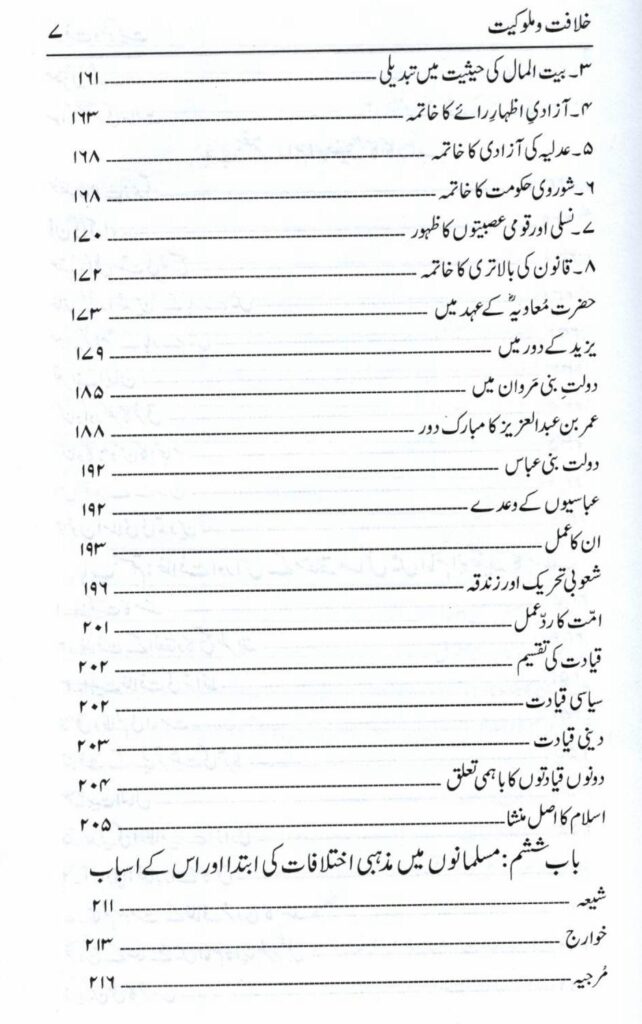 خلافت و ملوکیت ۷
۳۔ بیت المال کی حیثیت میں تبدیلی ۱۶۱
۴۔ آزادیِ اظہارِ رائے کا خاتمہ ۱۶۳
۵۔ عدلیہ کی آزادی کا خاتمہ ۱۶۸
۶۔ شوروی حکومت کا خاتمہ ۱۶۸
۷۔ نسلی اور قومی عصبیتوں کا ظہور ۱۷۰
۸۔ قانون کی بالاتری کا خاتمہ ۱۷۲
حضرت مُعاویہؓ کے عہد میں ۱۷۳
یزید کے دور میں ۱۷۹
دولتِ بنی مَروان میں ۱۸۵
عمر بن عبدالعزیز کا مبارک دور ۱۸۸
دولت بنی عباس ۱۹۲
عباسیوں کے وعدے ۱۹۲
ان کا عمل ۱۹۳
شعوبی تحریک اور زندقہ ۱۹۶
امّت کا ردِّعمل ۲۰۱
قیادت کی تقسیم ۲۰۲
سیاسی قیادت ۲۰۲
دینی قیادت ۲۰۳
دونوں قیادتوں کا باہمی تعلق ۲۰۴
اسلام کا اصل منشا ۲۰۵
باب ششم: مسلمانوں میں مذہبی اختلافات کی ابتدا اور اس کے اسباب
شیعہ ۲۱۱
خوارج ۲۱۳
مُرجیہ ۲۱۶